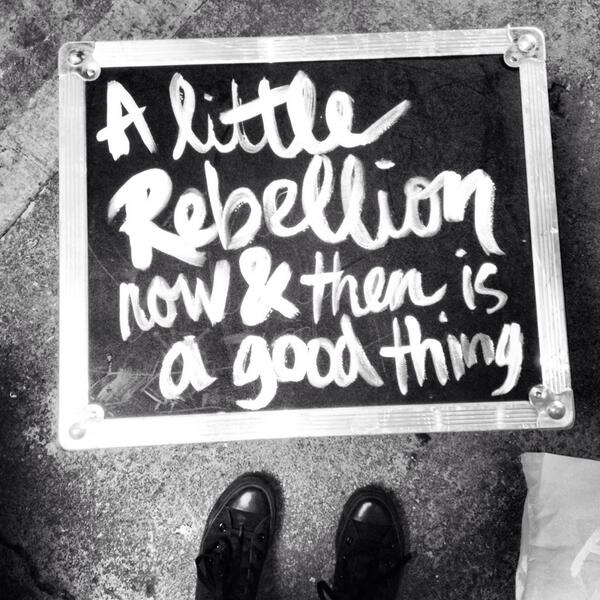 A little
Rebellion
now & then is
a good thing